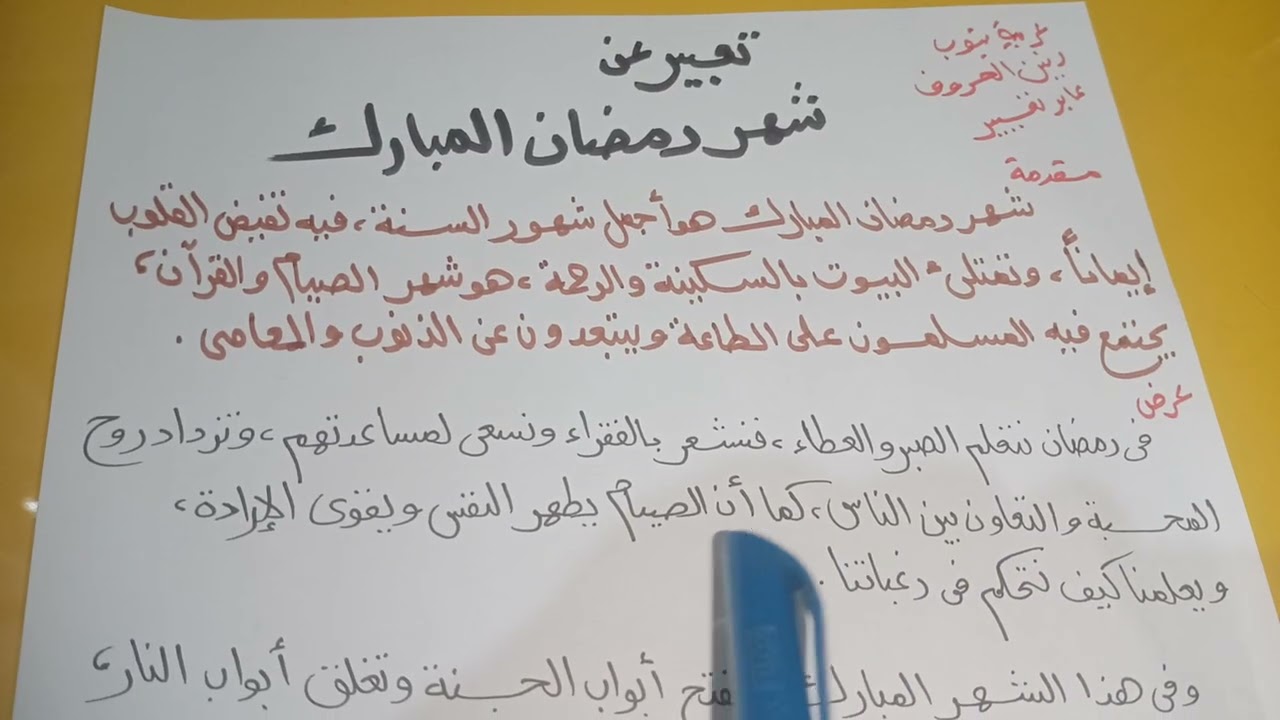 تعبير عن
شهر رمضان المبارك
عربية بنوب
بنن الحروف
عابر تفسير
مقدمة
شهر رمضان المبارك هو أجمل شهور السنة، فيه تفيض القلوب
إيماناً، وتمتلئ البيوت بالسكينة والرحمة، هو شهر الصيام والقرآن،
يجتمع فيه المسلمون على الطاعة ويبتعدون عن الذنوب والمعاصى.
عرض
فى رمضان نتعلم الصبر والعطاء، فنشعر بالفقراء ونسعى لمساعدتهم، وتزداد روح
المحبة والتعاون بين الناس، كما أن الصيام يطهر النفس ويقوى الإرادة،
ويعلمنا كيف نتحكم فى رغباتنا.
وفى هذا الشهر المبارك فتح أبواب الجنة وتغلق أبواب النار،